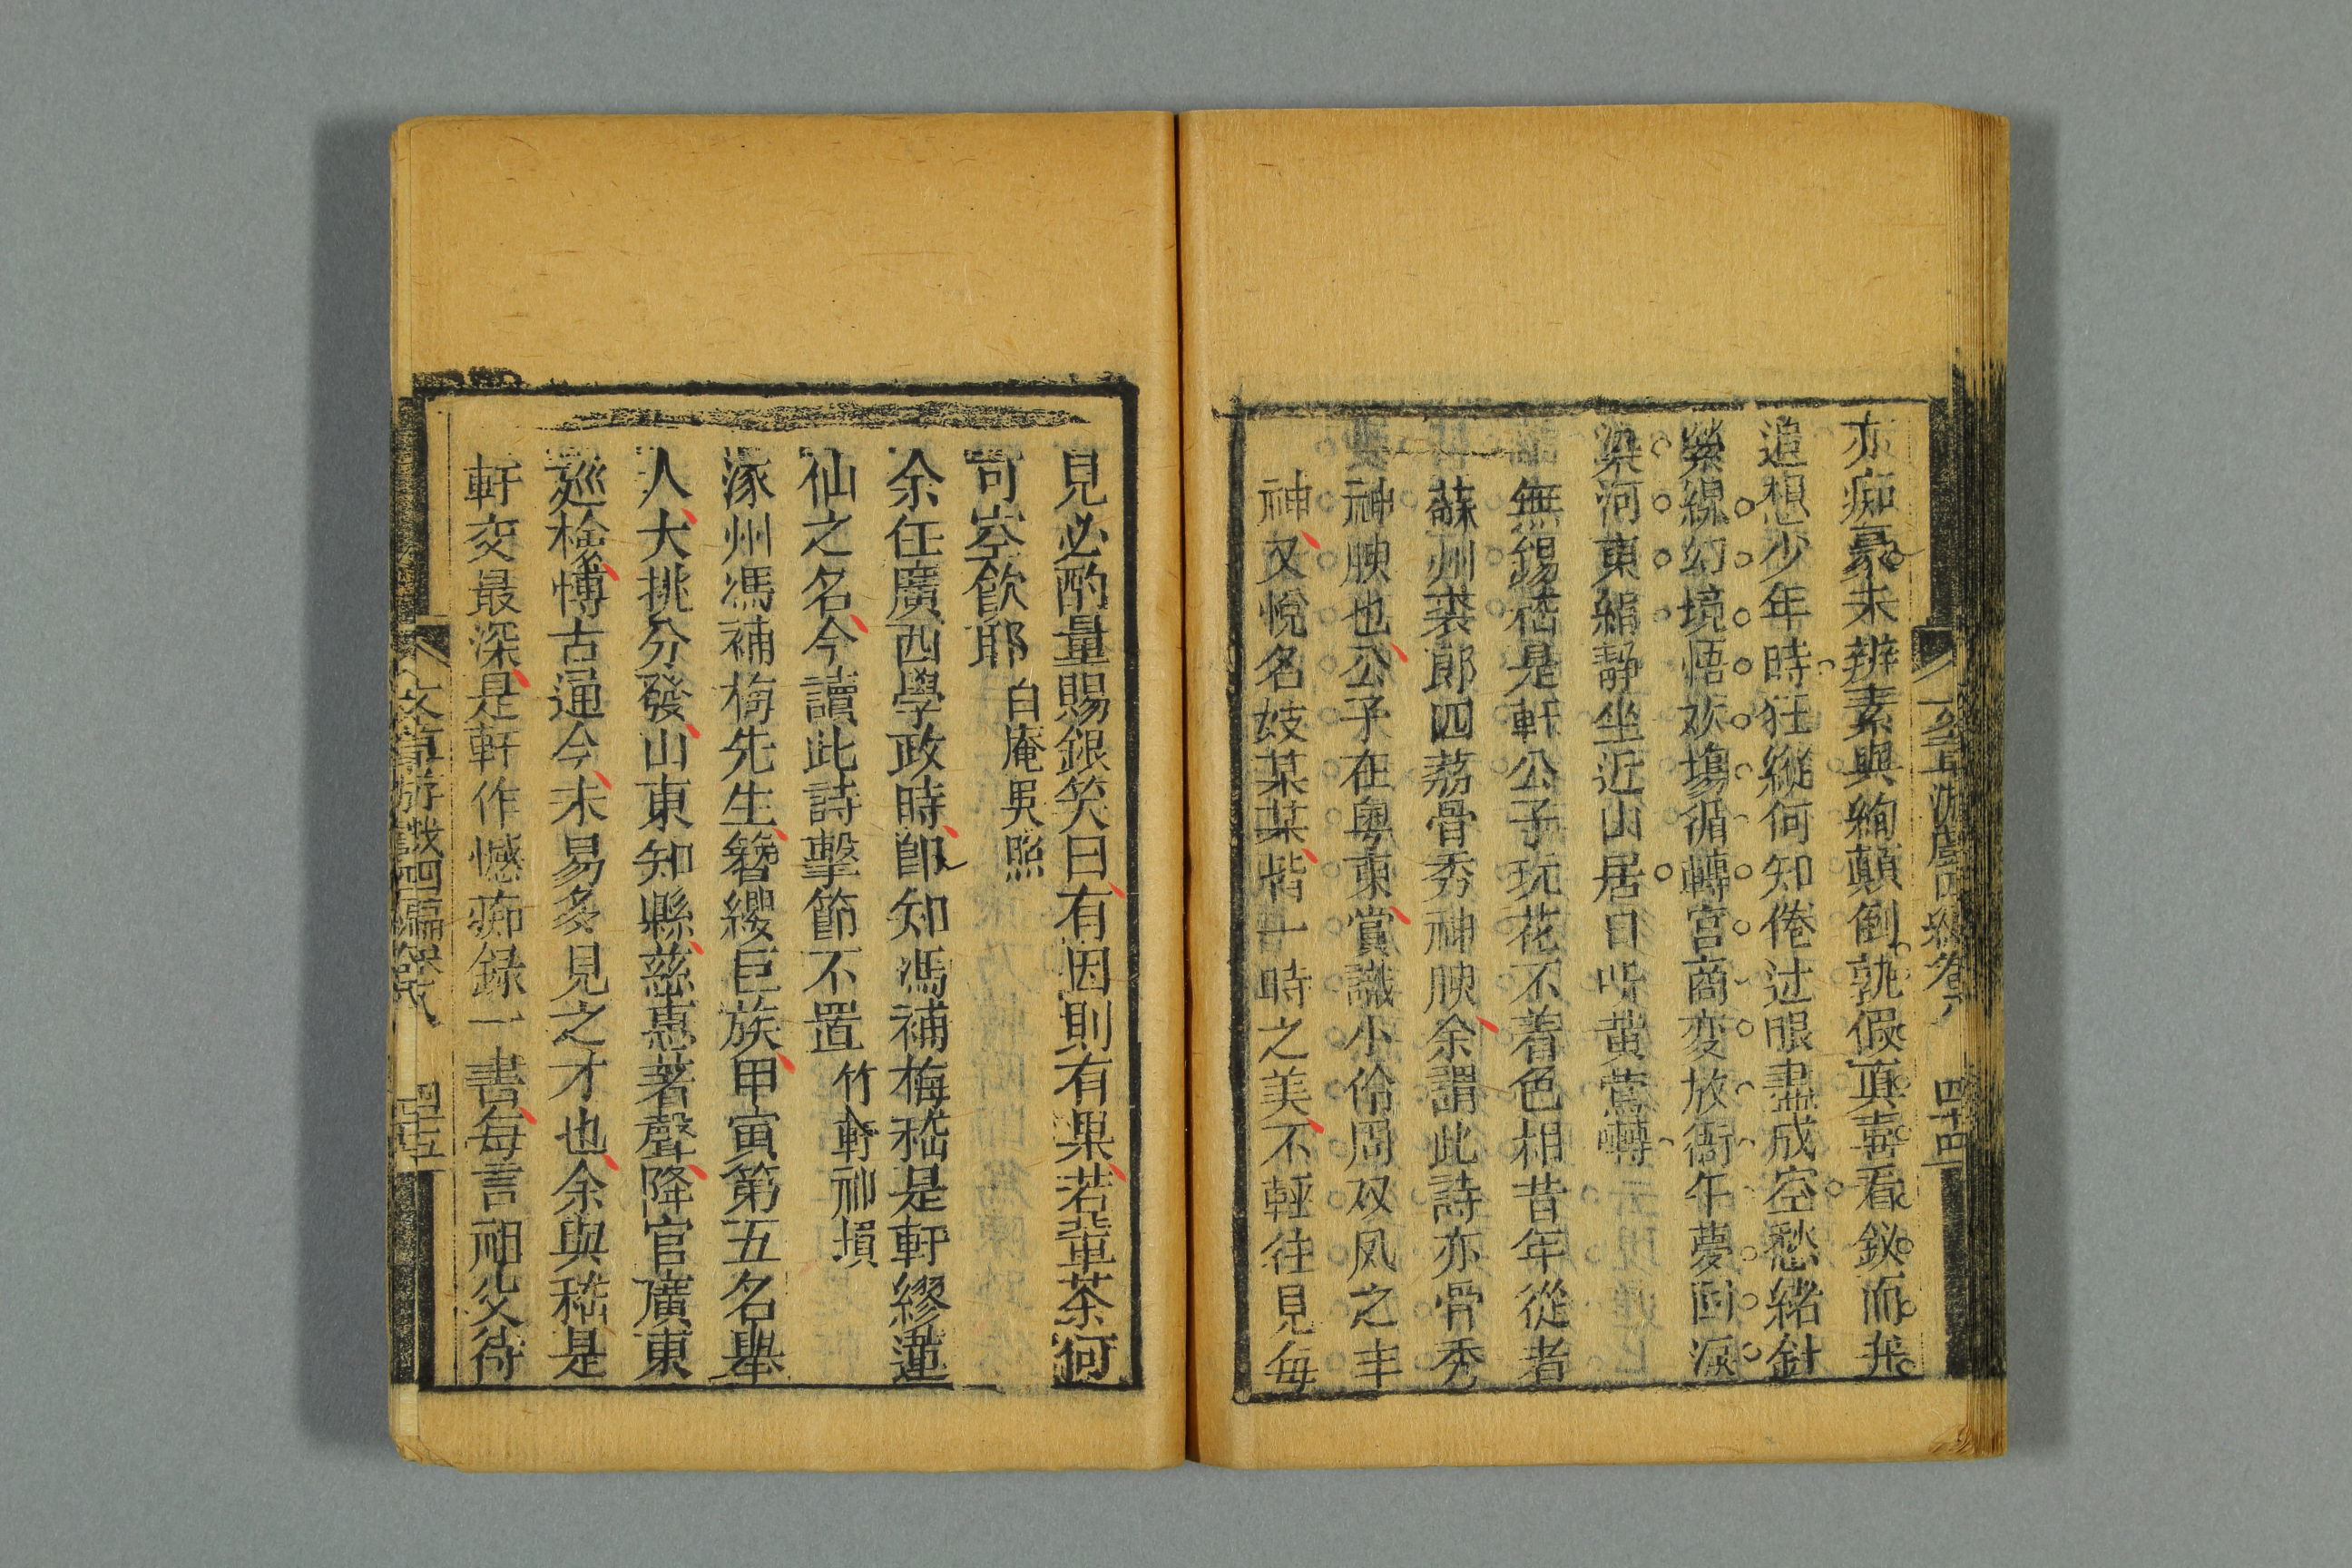 亦痴豪未辨素與絢顛倒孰假真喜看鈙而弁
追想少年時狂縱何知倦过眼盡成空愁緒針
縈線幻境悟欢塲循轉宮商変放衙午夢囬淚
染河東絹静坐近山居自听黄鶯囀
無錫嵇是軒公子玩花不着色相昔年從者
蘇州裘郎四荔骨秀神腴余謂此詩亦骨秀
神腴也公子在粤東賞識小伶周双凤之丰
神又悅名妓某某皆一時之美不輕往見每
四十四
見必酌量賜銀笑曰有因則有果若輩茶何
可空飲耶 白庵男照
余任廣西學政時卽知馮補梅嵇是軒繆蓮
仙之名今讀此詩擊節不置 竹軒祁塤
涿州馮補梅先生簪纓巨族甲寅第五名舉
人大挑分發山東知縣慈惠著聲降官廣東
廵檢博古通今未易多見之才也余與嵇是
軒交最深是軒作憾痴録一書每言祖父待
文章游戲四編
四十五